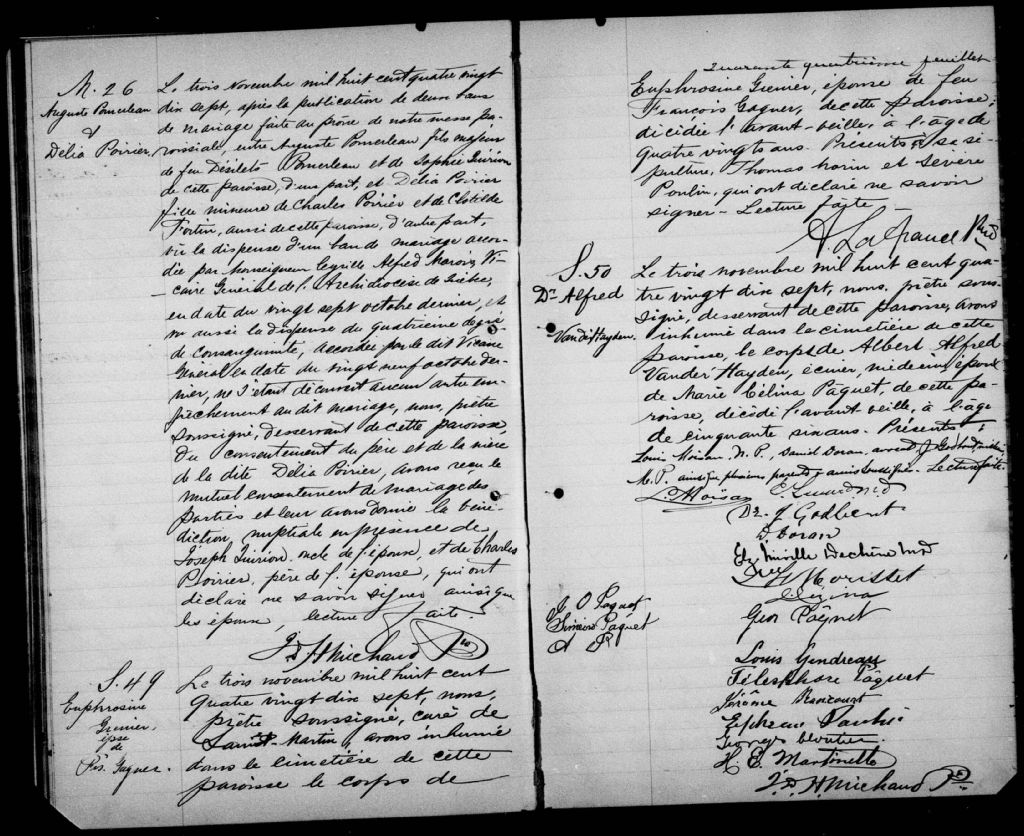 M. 26
Auguste Pomerleau
&
Délia Poirier.
Le trois novembre mil huit cent quatre vingt
dix sept, après la publication de deux bans
de mariage faite au prône de notre messe pa-
roissiale, entre Auguste Pomerleau fils majeur
de feu Désilets Pomerleau et de Sophie Quirion
de cette paroisse, d'une part, et Délia Poirier
fille mineure de Charles Poirier et de Clotilde
Fortin, aussi de cette paroisse, d'autre part,
vu la dispense d'un ban de mariage accor-
dée par Monseigneur Cyrille Alfred Marois, Vi-
caire Général de l'Archidiocèse de Québec,
en date du vingt sept octobre dernier, et
vu aussi la dispense du quatrième degré
de consanguinité, accordée par le dit Vicaire
Général en date du vingt neuf octobre der-
nier, ne s'étant découvert aucun autre em-
pêchement au dit mariage, nous, prêtre
soussigné, desservant de cette paroisse,
du consentement du père et de la mère
de la dite Délia Poirier, avons reçu le
mutuel consentement de mariage des
parties et leur avons donné la béné-
diction nuptiale en présence de
Joseph Quirion oncle de l'époux, et de Charles
Poirier, père de l'épouse, qui ont
déclaré ne savoir signer ainsi que
les époux, lecture faite.
J. D. H Michaud Ptre
S. 49
Euphrosine
Grenier
épse
de
Frs. Gagner.
Le trois novembre mil huit cent
quatre vingt dix sept, nous,
prêtre soussigné, curé de
Saint-Martin, avons inhumé
dans le cimetière de cette
paroisse le corps de
Quarante quatrième feuillet
Euphrosine Grenier, épouse de feu
François Gagner, de cette paroisse,
décédée l'avant-veille, à l'âge de
quatre vingts ans. Présents à sa sé-
pulture, Thomas Morin et Sévère
Poulin, qui ont déclaré ne savoir
signer - Lecture faite -
S. 50
Dr Alfred
Van der Hayden.
Le trois novembre mil huit cent qua-
tre vingt dix sept, nous, prêtre sous-
signé, desservant de cette paroisse, avons
inhumé dans le cimetière de cette
paroisse, le corps de Albert Alfred
Vander Hayden, écuier, médecin, époux
de Marie Célina Paquet, de cette pa-
roisse, décédé l'avant veille, à l'âge
de cinquante six ans. Présents:
Louis Moisan, N. P., David Doran, J. Godbout
M. P. ainsi que plusieurs parents & amis soussignés. Lecture faite.
L. Moisan
Dr. J Godbout
D. Doran
Miville Dechêne MD
Morisset
J O Paquet
Siméon Paquet
Geo Paquet
Louis Gendreau
Télesphore Paquet
Jérôme Rancourt
Georges Cloutier
H. E. Martinette
J. D. H Michaud Ptre